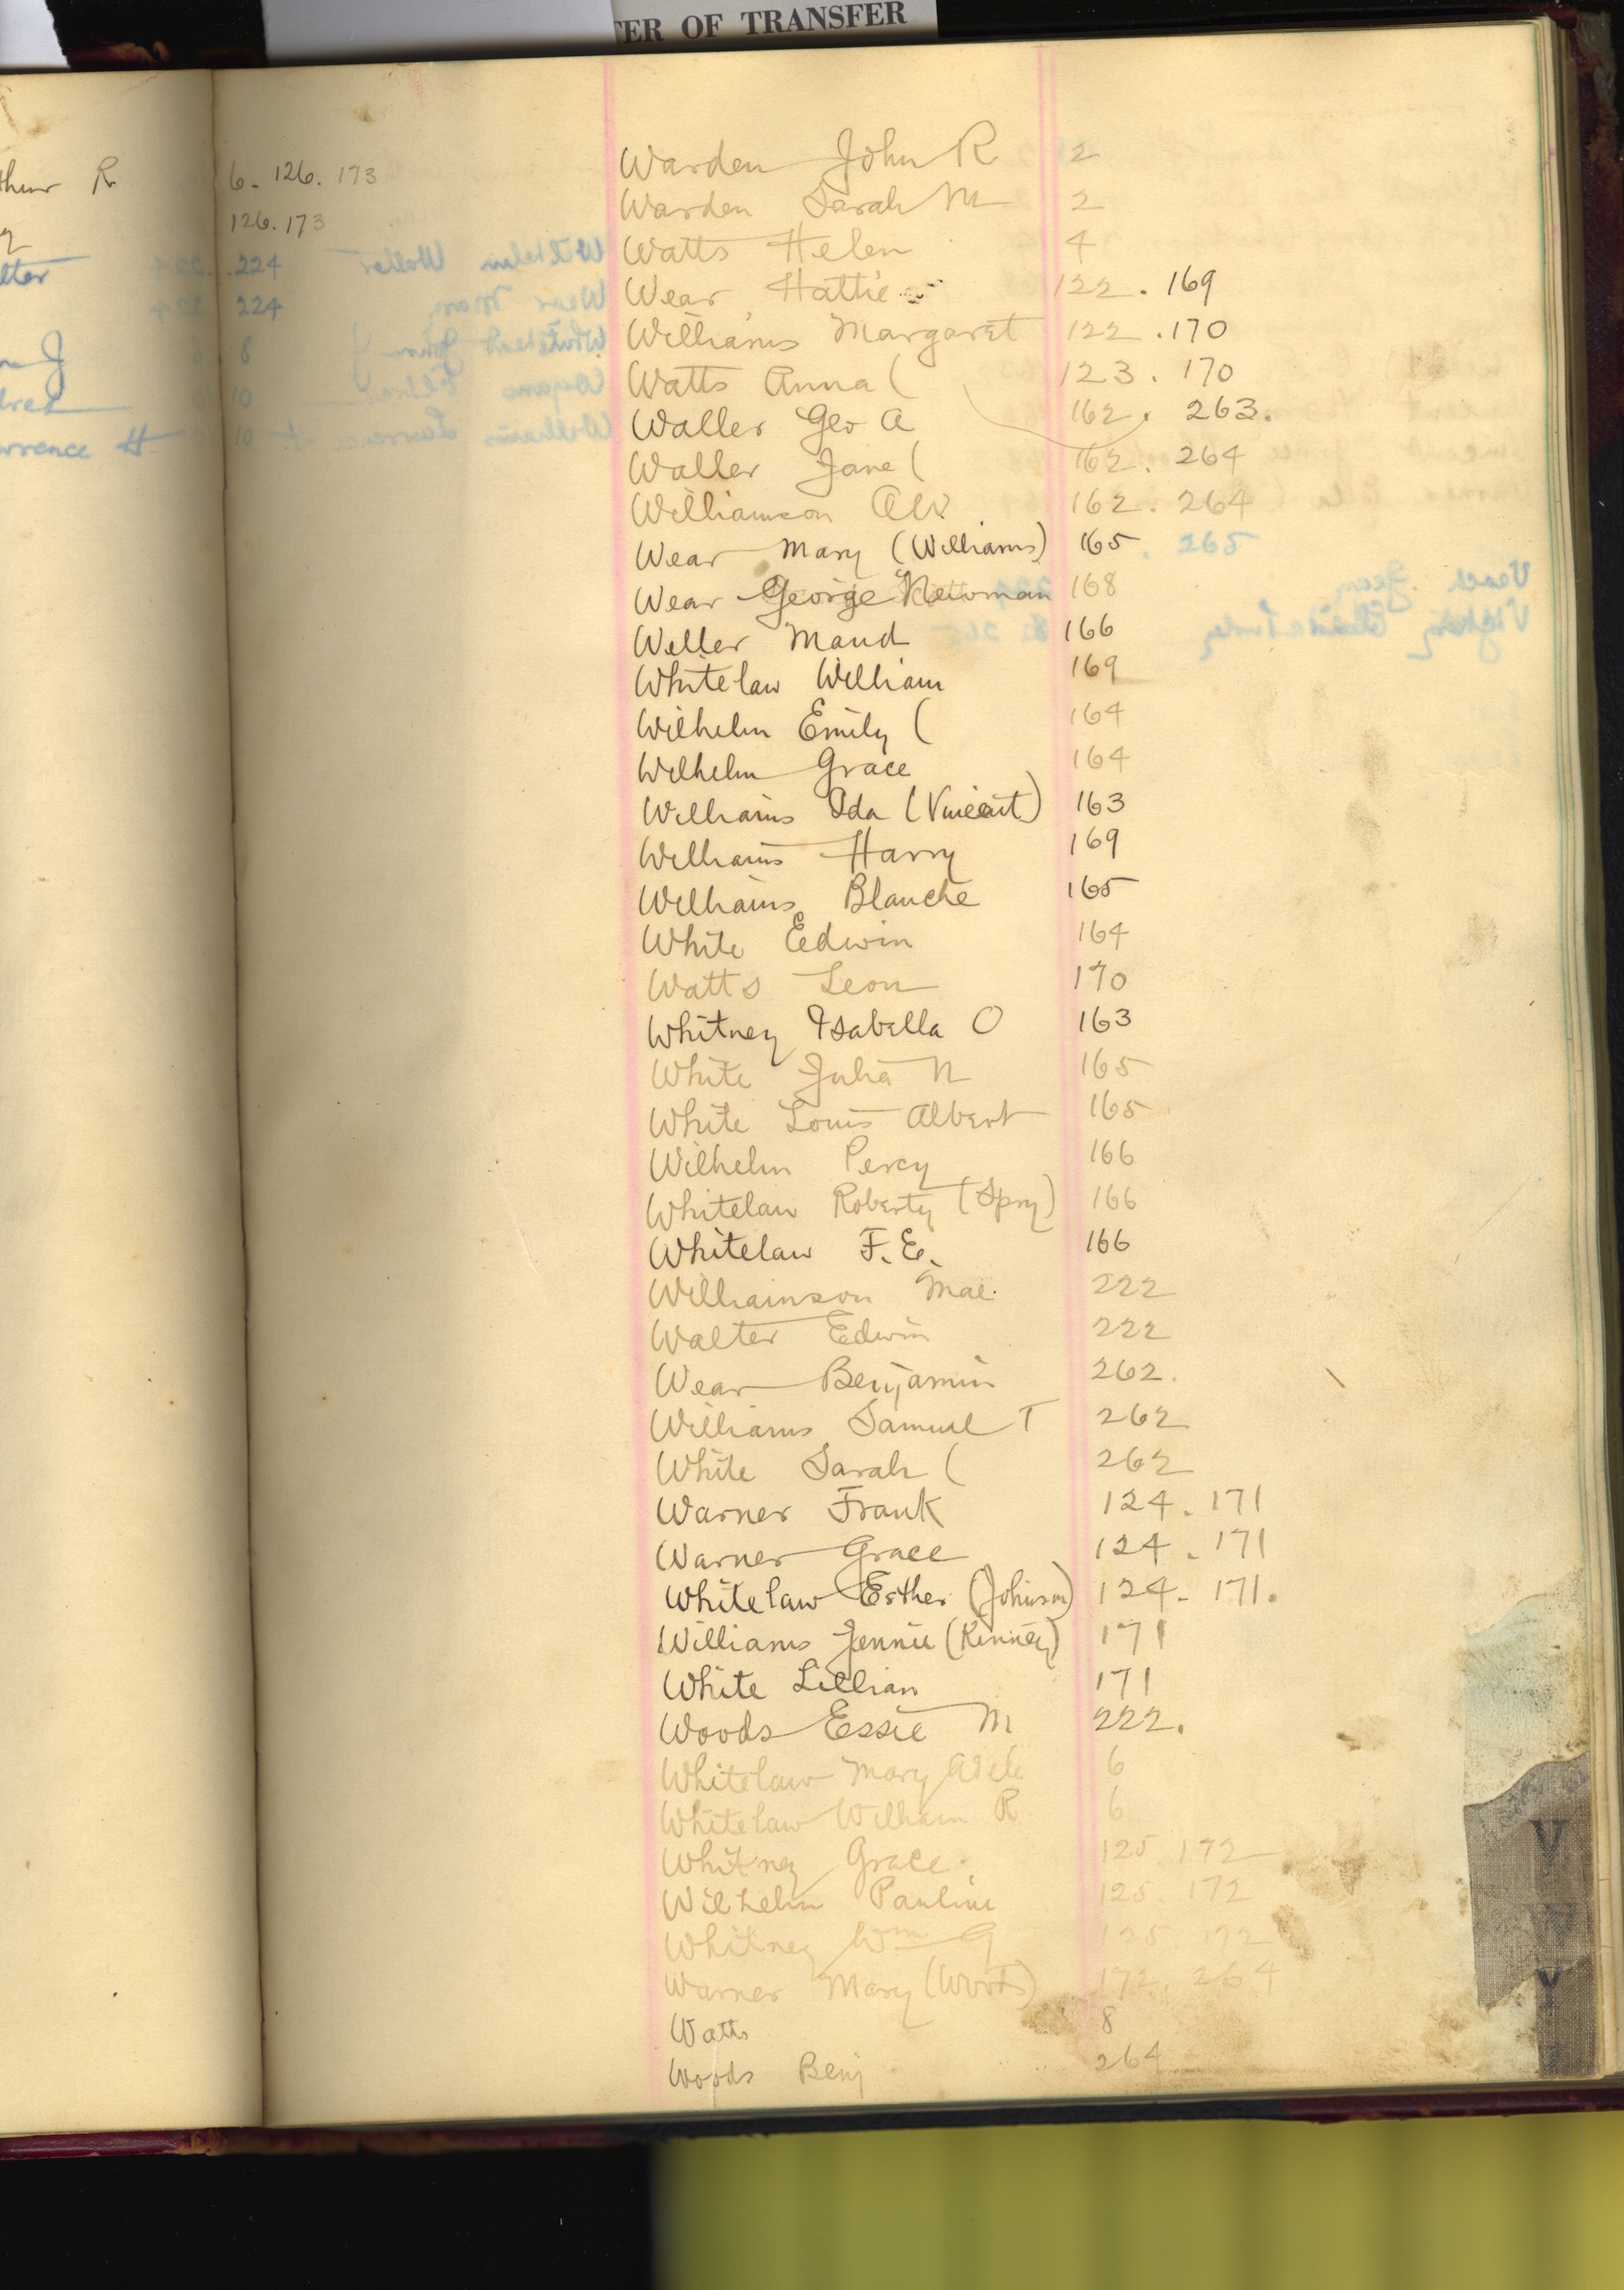 TER OF TRANSFER
thur R 6. 126. 173
126. 173
lter 224
224
J 8
dred 10
wrence H 10
Warden John R 2
Warden Sarah M 2
Watts Helen 4
Wear Hattie 122. 169
Williams Margaret 122. 170
Watts Anna ( 123. 170
Waller Geo A 162. 263.
Waller Jane ( 162. 264
Williamson AW 162. 264
Wear Mary (Williams) 165. 265
Wear George Newman 168
Weller Maud 166
Whitelaw William 169
Wilhelm Emily ( 164
Wilhelm Grace 164
Williams Ida (Vincent) 163
Williams Harry 169
Williams Blanche 165
White Edwin 164
Watts Leon 170
Whitney Isabella O 163
White Julia N 165
White Louis Albert 165
Wilhelm Percy 166
Whitelaw Roberty (Spry) 166
Whitelaw F. E. 166
Williamson Mae. 222
Walter Edwin 222
Wear Benjamin 262.
Williams Samuel T 262
White Sarah ( 262
Warner Frank 124. 171
Warner Grace 124. 171
Whitelaw Esther (Johnson) 124. 171.
Williams Jennie (Kinney) 171
White Lillian 171
Woods Essie M 222.
Whitelaw Mary Adele 6
Whitelaw William R 6
Whitney Grace. 125. 172
Wilhelm Pauline 125. 172
Whitney Wm G 125. 172
Warner Mary (Woods) 172. 264
Watts 8
Woods Benj 264
V
W
Y